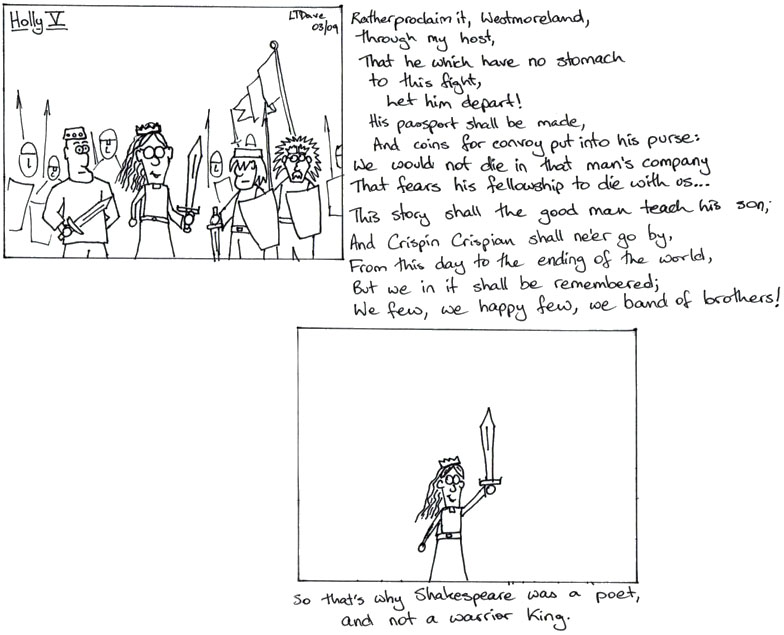 Holly V
LTDave
03/09
Rather proclaim it, Westmoreland,
through my host,
That he which have no stomach
to this fight,
Let him depart!
His passport shall be made,
And coins for convoy put into his purse:
We would not die in that man's company
That fears his fellowship to die with us...
This story shall the good man teach his son;
And Crispin Crispian shall ne'er go by,
From this day to the ending of the world,
But we in it shall be remembered;
We few, we happy few, we band of brothers!
So that's why Shakespeare was a poet,
and not a warrior King.